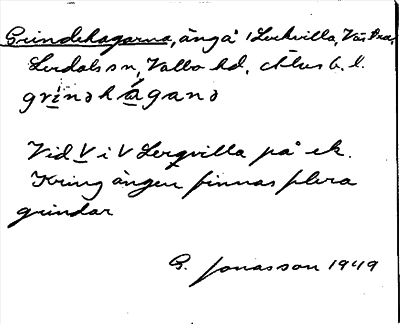 Grindehagarna, äng å Lerkvilla, Västra,
Lerdals sn, Valbo hd, Älvs b. l.
grindhágand
Vid V i V Lerqvilla på ek.
Kring ängen finnas flera
grindar
G. Jonasson 1949